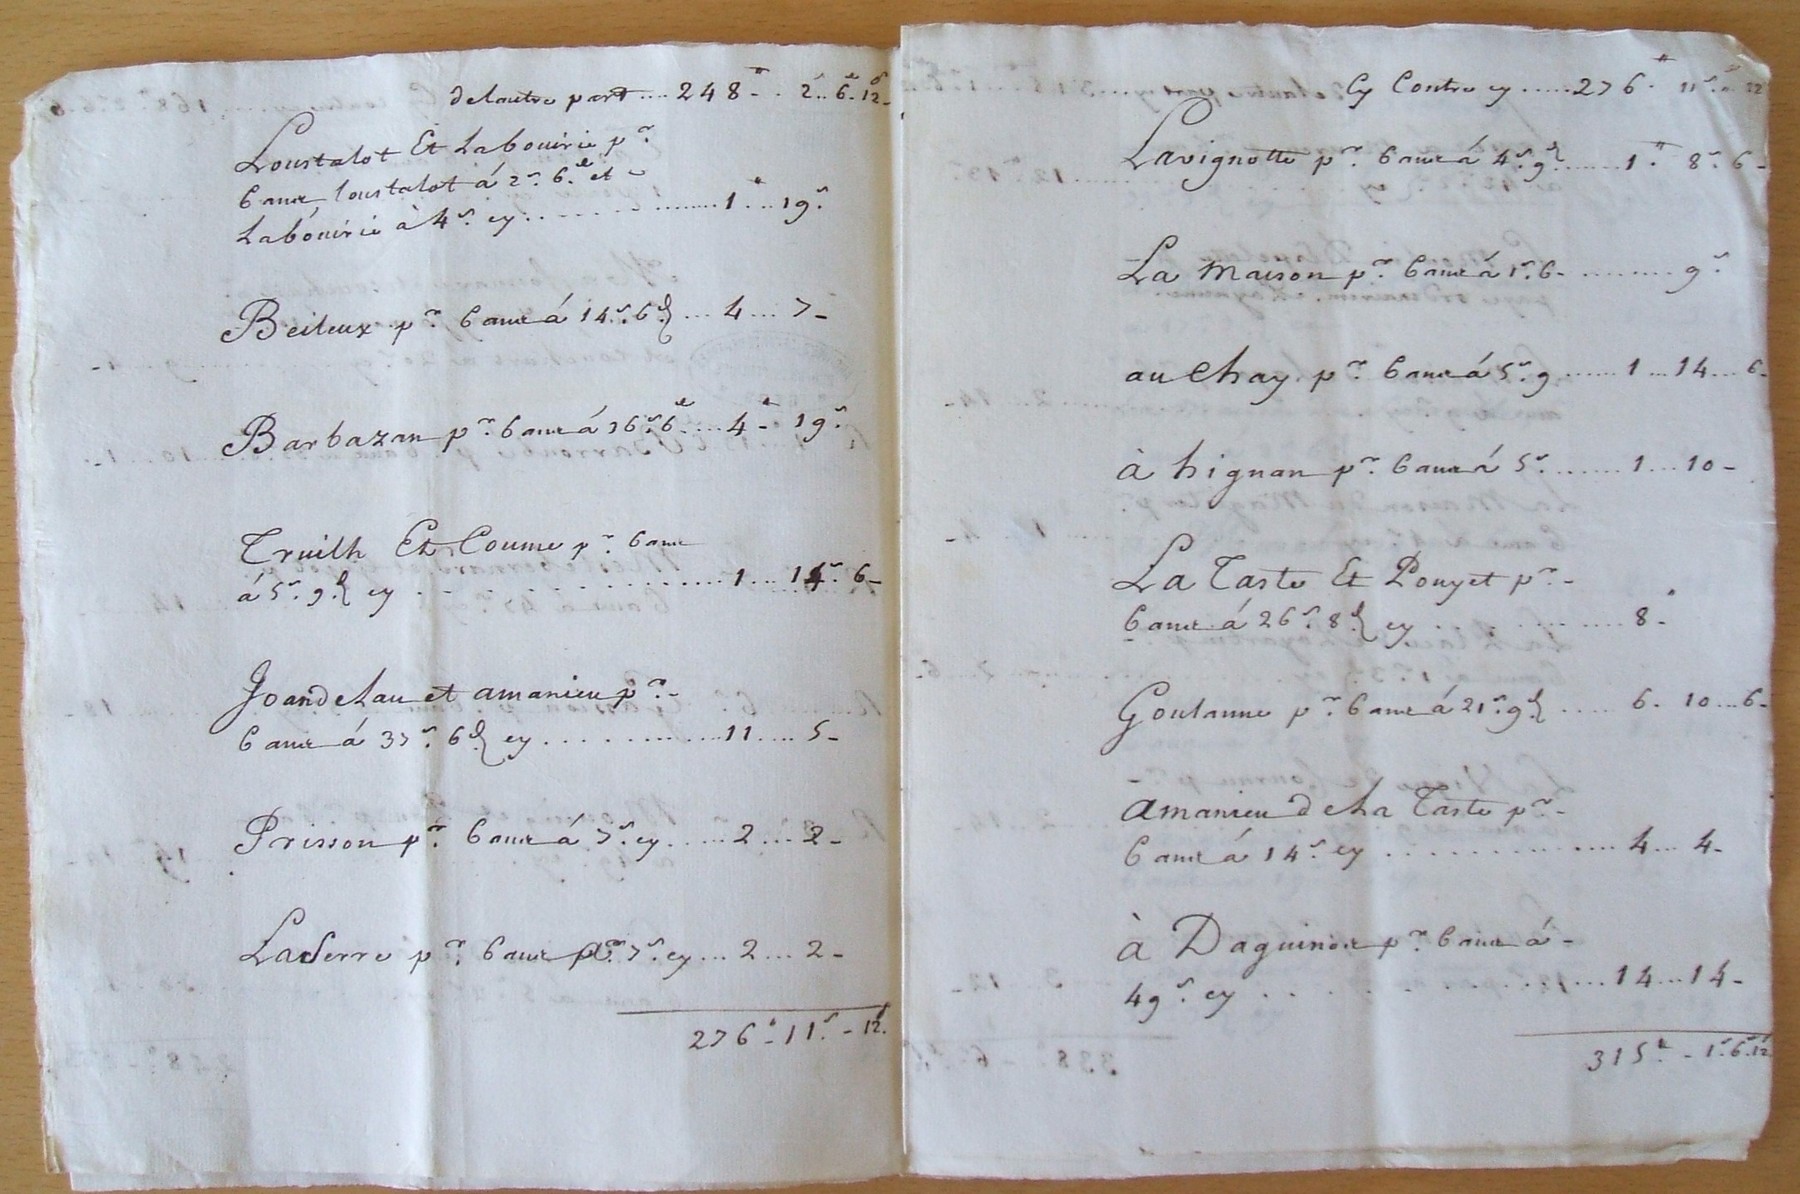 delautre part .... 248# .. 2s .. 6d. 12
Loustalot Et Labouirie pr.
6 aune loustalot á 2s. 6d et
Labouirie à 4s. cy ........ 1# .. 19s.
Beileux pr. 6 aune á 14s. 6d ... 4 ... 7 -
Barbazan pr. 6 aune á 16s. 6d .... 4# - 19s.
Truilh Et Coume pr. 6 aune
á 5s. 9d cy ........ 1 ... 14s. 6 -
Joandelau et amanieu pr. -
6 aune á 37s. 6d cy ........ 11 .... 5 -
Prisson pr. 6 aune á 7s. cy ..... 2 ... 2 -
Laserre pr. 6 aune pr. 7s. cy ... 2 ... 2 -
276# - 11s. - 12.
Cy Contre cy ..... 276# 11s. 12
Lavignotte pr. 6 aune á 4s. 9d ...... 1# 8s. 6 -
La Maison pr. 6 aune á 1s. 6 - ........ 9s.
au Chay pr. 6 aune á 5s. 9 ...... 1 ... 14 ... 6 -
à hignan pr. 6 aune á 5s. ...... 1 ... 10 -
La Taste Et Pouyet pr. -
6 aune á 26s. 8d cy ........ 8# -
Goulanne pr. 6 aune á 21s. 9d ..... 6 . 10 ... 6 -
amanieu de La Taste pr. -
6 aune á 14s. cy ........ 4 ... 4 -
à Daguinot pr. 6 aune á -
49s. cy ........ 14 ... 14 -
315# - 1s. 6d. 12